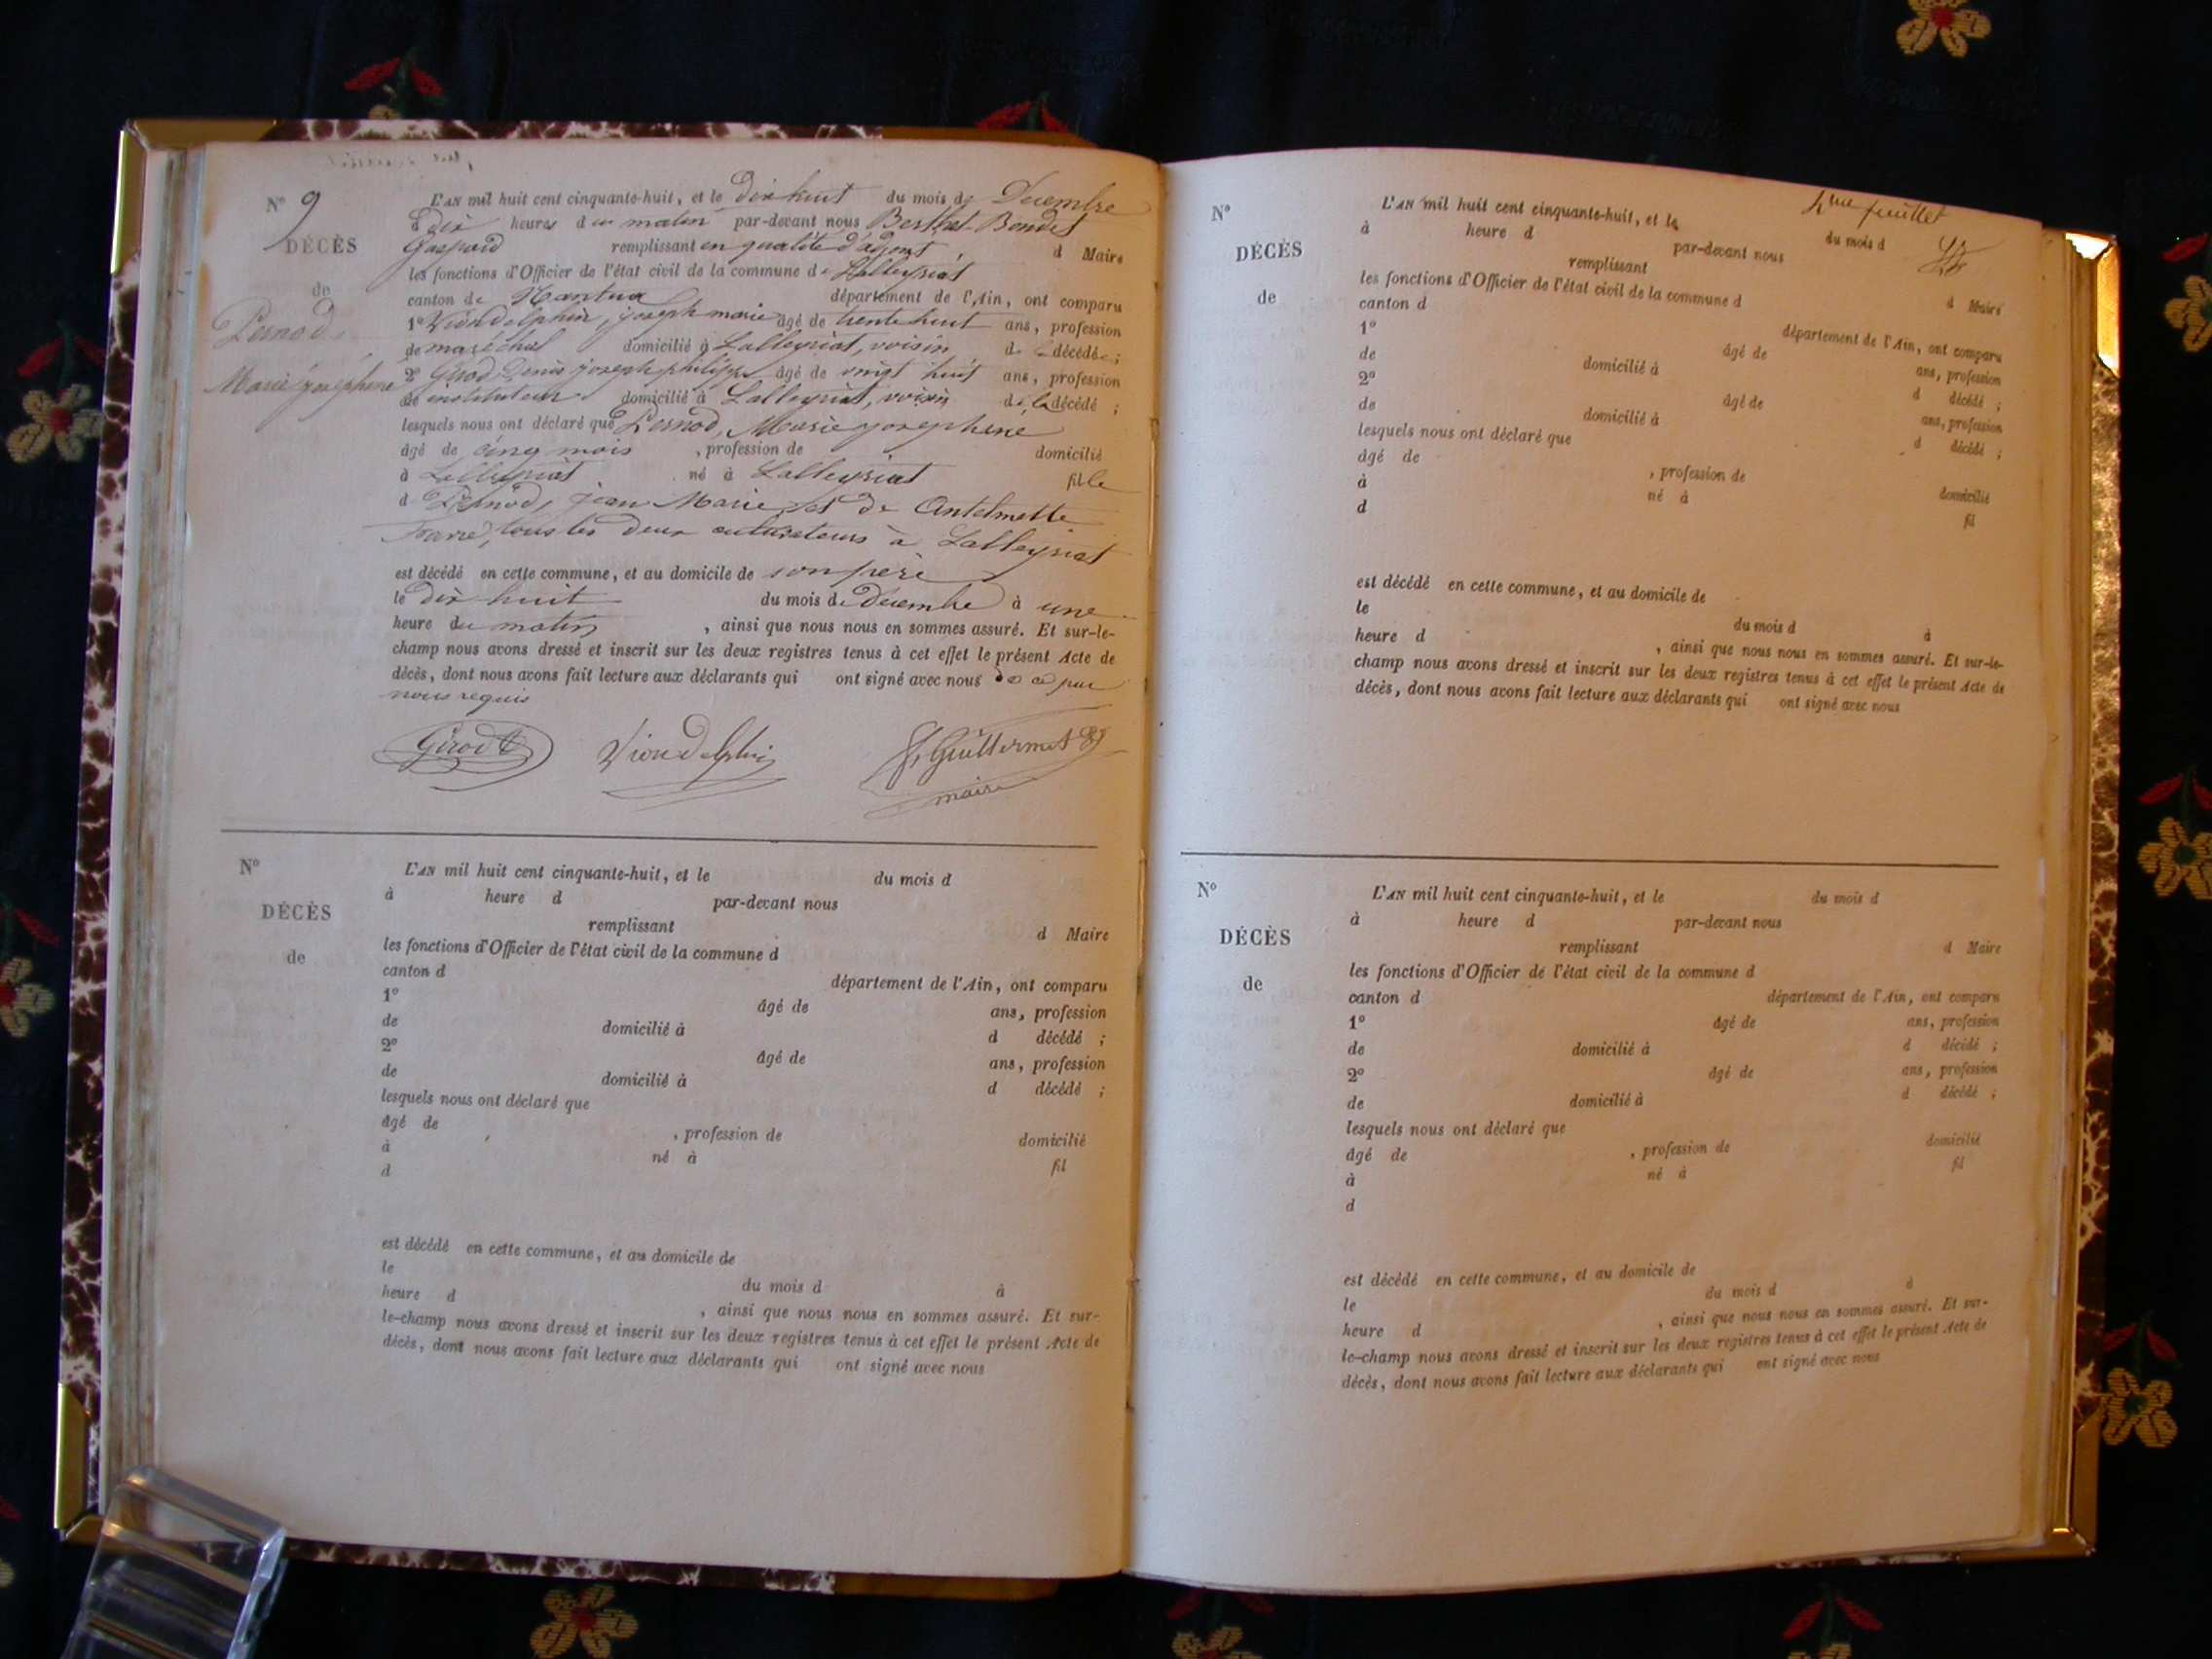 N° 9
DÉCÈS
de
Pernod
Marie josephine
L'AN mil huit cent cinquante-huit, et le dix huit du mois de Decembre
à dix heures du matin par-devant nous Berthet-Bondet
Gaspard remplissant en qualité d'adjoint d Maire
les fonctions d'Officier de l'état civil de la commune de Lalleyriat
canton de Nantua département de l'Ain, ont comparu
1° Viondelphin, joseph marie âgé de trente huit ans, profession
de maréchal domicilié à Lalleyriat, voisin de la décédée ;
2° Girod, Denis joseph philippe âgé de vingt huit ans, profession
de instituteur domicilié à Lalleyriat, voisin de la décédé ;
lesquels nous ont déclaré que Pernod, Marie josephine
âgé de cinq mois , profession de domicilié
à Lalleyriat né à Lalleyriat fille
d Pernod, jean Marie et de Antelmette
Favre, tous les deux cultivateurs à Lalleyriat
est décédé en cette commune, et au domicile de son père
le dix huit du mois de Decembre à une
heure du matin , ainsi que nous nous en sommes assuré. Et sur-le-
champ nous avons dressé et inscrit sur les deux registres tenus à cet effet le présent Acte de
décès, dont nous avons fait lecture aux déclarants qui ont signé avec nous de ce par
nous requis
Girod Viondelphin Guillermet
maire
N°
DÉCÈS
de
L'AN mil huit cent cinquante-huit, et le du mois d
à heure d par-devant nous
remplissant d Maire
les fonctions d'Officier de l'état civil de la commune d
canton d département de l'Ain, ont comparu
1° âgé de ans, profession
de domicilié à d décédé ;
2° âgé de ans, profession
de domicilié à d décédé ;
lesquels nous ont déclaré que
âgé de , profession de domicilié
à né à fil
d
est décédé en cette commune, et au domicile de
le du mois d à
heure d , ainsi que nous nous en sommes assuré. Et sur-
le-champ nous avons dressé et inscrit sur les deux registres tenus à cet effet le présent Acte de
décès, dont nous avons fait lecture aux déclarants qui ont signé avec nous
4me feuillet
N°
DÉCÈS
de
L'AN mil huit cent cinquante-huit, et le du mois d
à heure d par-devant nous
remplissant d Maire
les fonctions d'Officier de l'état civil de la commune d
canton d département de l'Ain, ont comparu
1° âgé de ans, profession
de domicilié à d décédé ;
2° âgé de ans, profession
de domicilié à d décédé ;
lesquels nous ont déclaré que
âgé de , profession de domicilié
à né à fil
d
est décédé en cette commune, et au domicile de
le du mois d à
heure d , ainsi que nous nous en sommes assuré. Et sur-le-
champ nous avons dressé et inscrit sur les deux registres tenus à cet effet le présent Acte de
décès, dont nous avons fait lecture aux déclarants qui ont signé avec nous
N°
DÉCÈS
de
L'AN mil huit cent cinquante-huit, et le du mois d
à heure d par-devant nous
remplissant d Maire
les fonctions d'Officier de l'état civil de la commune d
canton d département de l'Ain, ont comparu
1° âgé de ans, profession
de domicilié à d décédé ;
2° âgé de ans, profession
de domicilié à d décédé ;
lesquels nous ont déclaré que
âgé de , profession de domicilié
à né à fil
d
est décédé en cette commune, et au domicile de
le du mois d à
heure d , ainsi que nous nous en sommes assuré. Et sur-
le-champ nous avons dressé et inscrit sur les deux registres tenus à cet effet le présent Acte de
décès, dont nous avons fait lecture aux déclarants qui ont signé avec nous